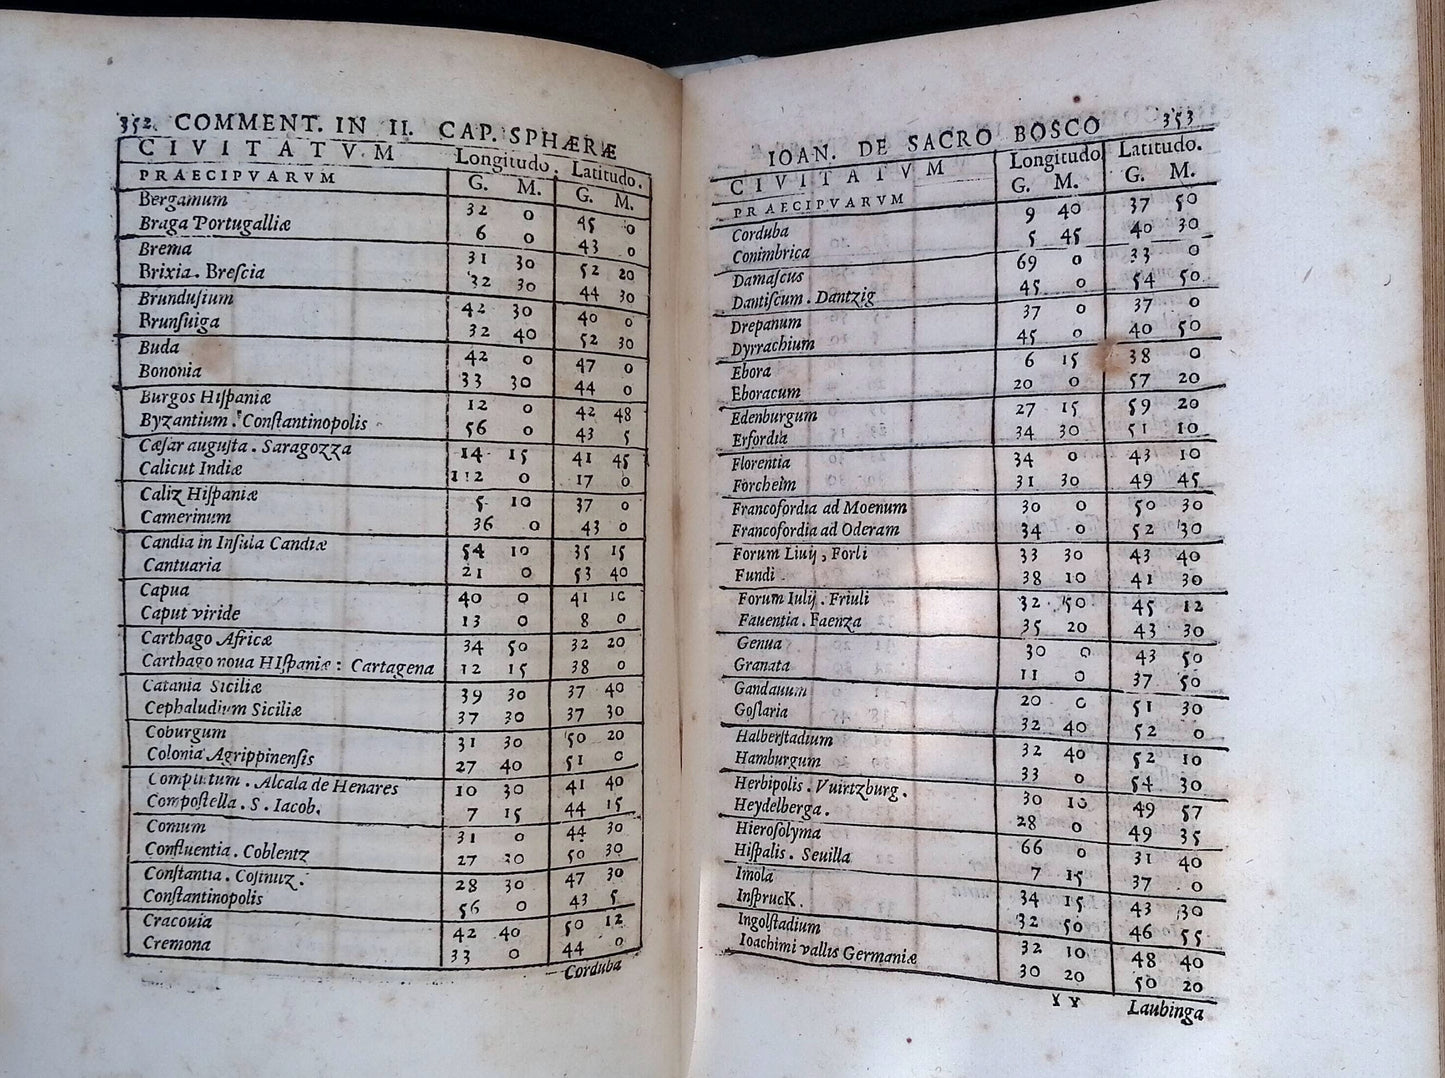 352. COMMENT. IN II. CAP. SPHÆRÆ
CIVITATVM Longitudo. Latitudo.
PRAECIPVARVM G. M. G. M.
Bergamum 32 0 45 0
Braga Portugalliæ 6 0 43 0
Brema 31 30 52 20
Brixia. Breſcia 32 30 44 30
Brunduſium 42 30 40 0
Brunſuiga 32 40 52 30
Buda 42 0 47 0
Bononia 33 30 44 0
Burgos Hiſpaniæ 12 0 42 48
Byzantium. Conſtantinopolis 56 0 43 5
Cæſar auguſta. Saragozza 14 15 41 45
Calicut Indiæ 112 0 17 0
Caliz Hiſpaniæ 5 10 37 0
Camerinum 36 0 43 0
Candia in Inſula Candiæ 54 10 35 15
Cantuaria 21 0 53 40
Capua 40 0 41 10
Caput viride 13 0 8 0
Carthago Africæ 34 50 32 20
Carthago noua HIſpaniæ: Cartagena 12 15 38 0
Catania Siciliæ 39 30 37 40
Cephaludium Siciliæ 37 30 37 30
Coburgum 31 30 50 20
Colonia Agrippinenſis 27 40 51 0
Complutum. Alcala de Henares 10 30 41 40
Compoſtella. S. Iacob. 7 15 44 15
Comum 31 0 44 30
Confluentia. Coblentz 27 30 50 30
Conſtantia. Coſtnuz. 28 30 47 30
Conſtantinopolis 56 0 43 5
Cracouia 42 40 50 12
Cremona 33 0 44 0
Corduba
IOAN. DE SACRO BOSCO 353
CIVITATVM Longitudo Latitudo.
PRAECIPVARVM G. M. G. M.
Corduba 9 40 37 50
Conimbrica 5 45 40 30
Damaſcus 69 0 33 0
Dantiſcum. Dantzig 45 0 54 50
Drepanum 37 0 37 0
Dyrrachium 45 0 40 50
Ebora 6 15 38 0
Eboracum 20 0 57 20
Edenburgum 27 15 59 20
Erfordia 34 30 51 10
Florentia 34 0 43 10
Forcheim 31 30 49 45
Francofordia ad Moenum 30 0 50 30
Francofordia ad Oderam 34 0 52 30
Forum Liuij, Forli 33 30 43 40
Fundi 38 10 41 30
Forum Iulij. Friuli 32 50 45 12
Fauentia. Faenza 35 20 43 30
Genua 30 0 43 50
Granata 11 0 37 50
Gandauum 20 0 51 30
Goſlaria 32 40 52 0
Halberſtadium 32 40 52 10
Hamburgum 33 0 54 30
Herbipolis. Vuirtzburg. 30 10 49 57
Heydelberga. 28 0 49 35
Hieroſolyma 66 0 31 40
Hiſpalis. Seuilla 7 15 37 0
Imola 34 15 43 30
InſprucK. 32 50 46 55
Ingolſtadium 32 10 48 40
Ioachimi vallis Germaniæ 30 20 50 20
Laubinga